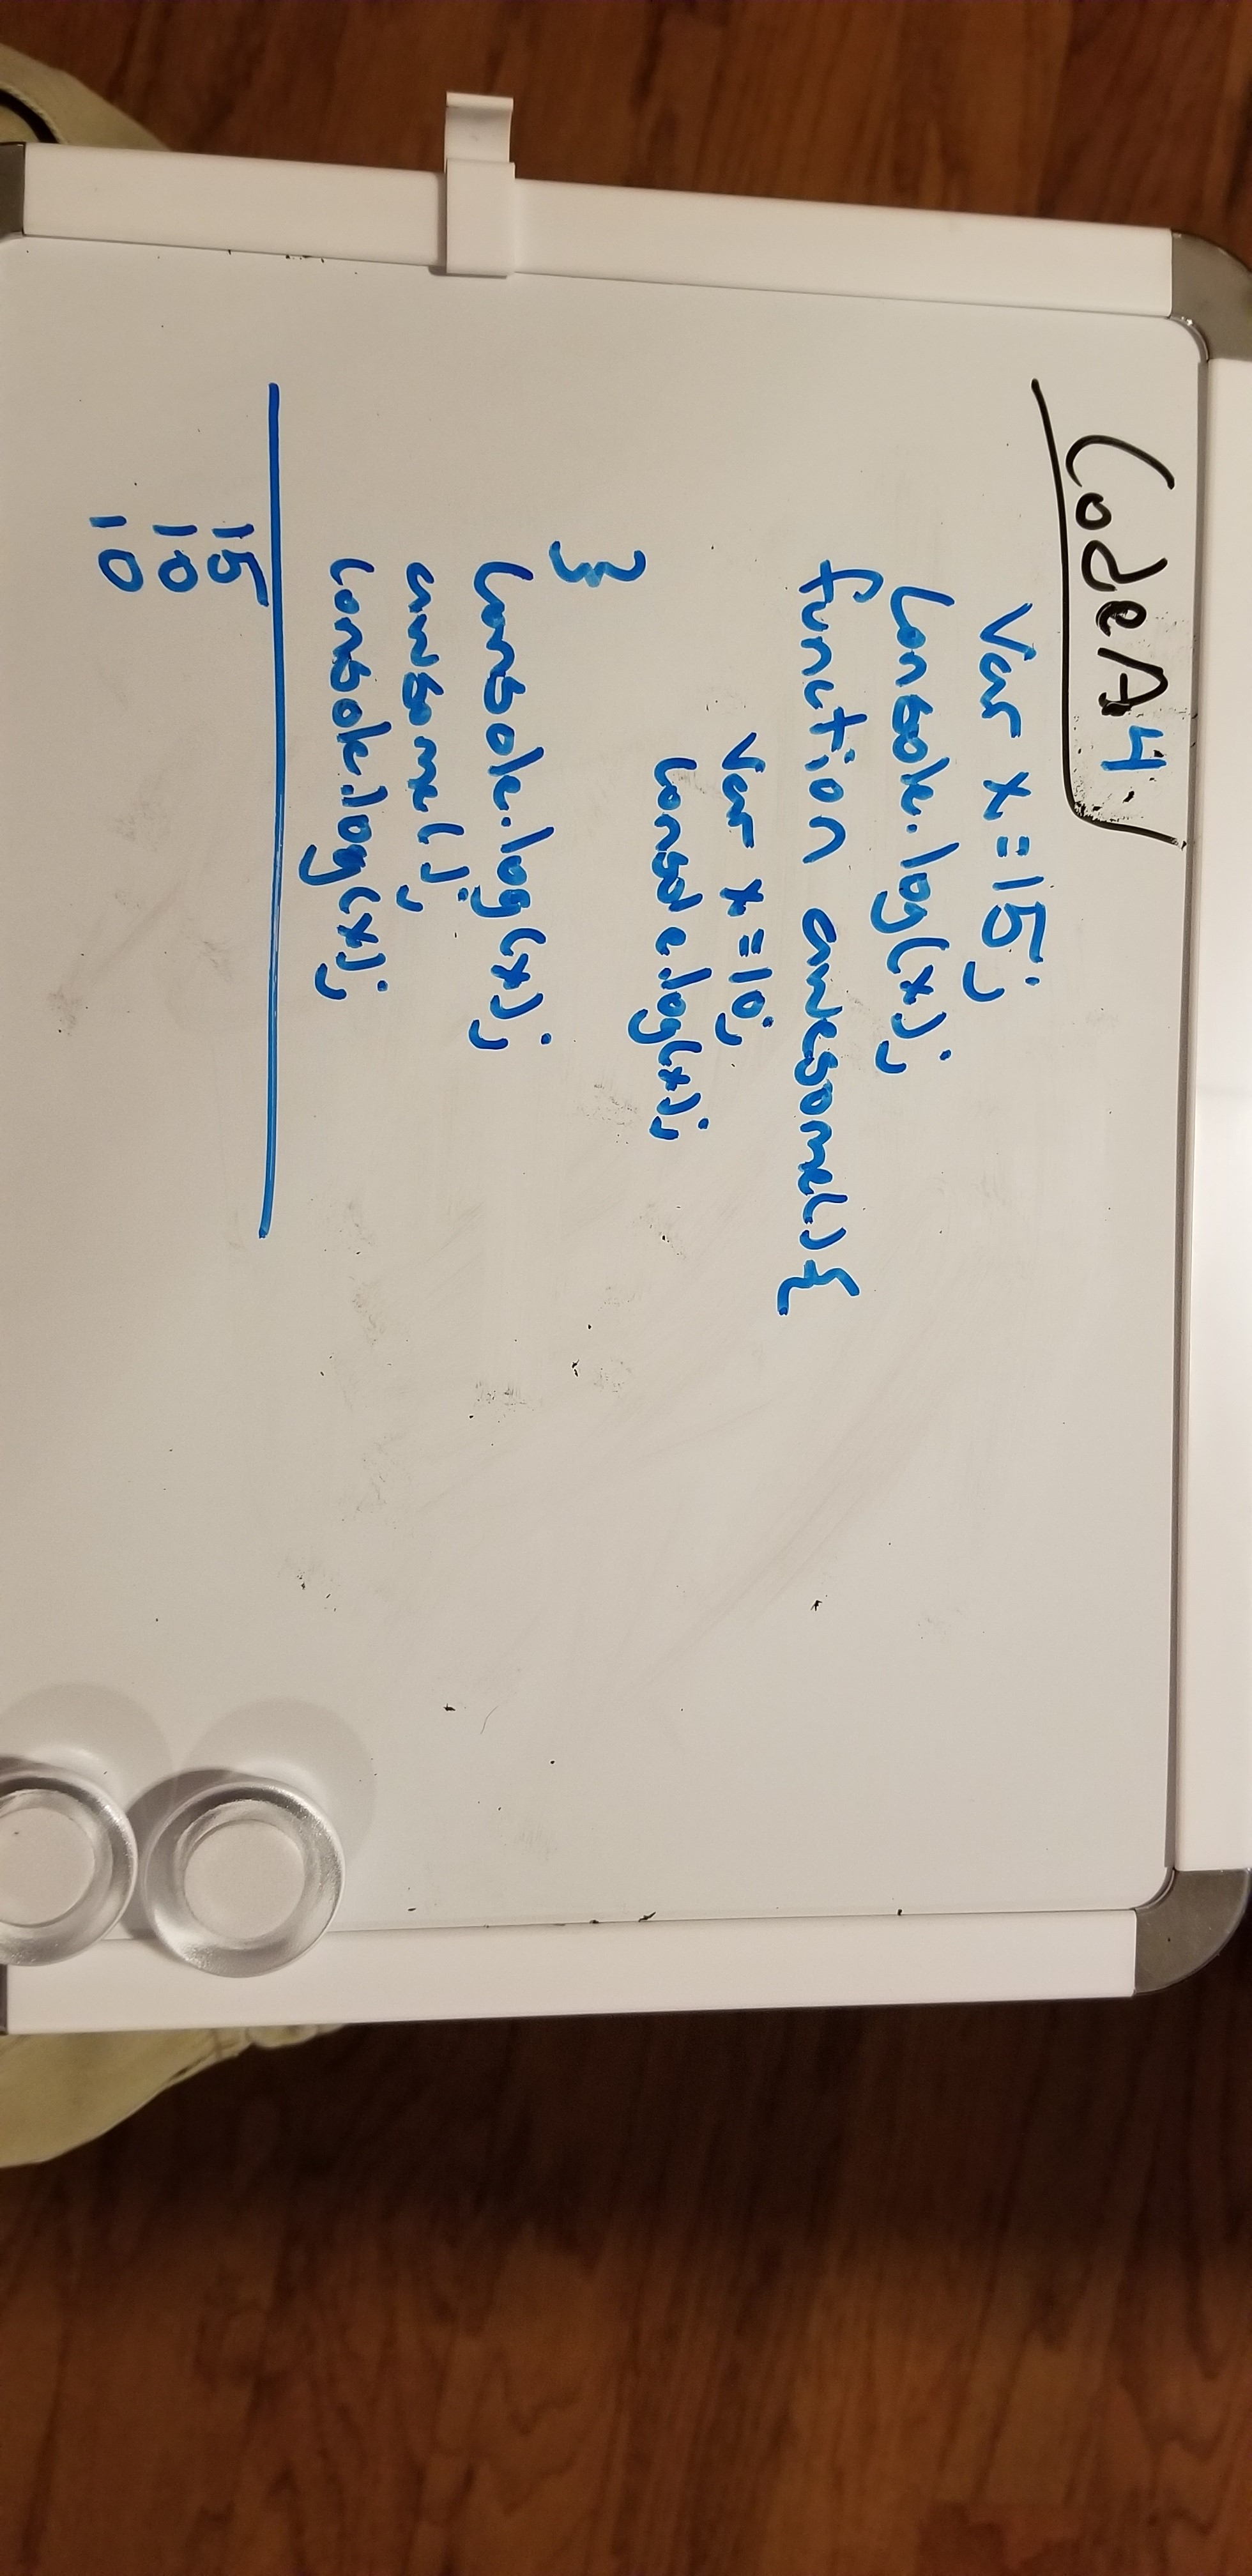 CodeA4
Var x = 15;
Console.log(x);
function awesome(){
Var x = 10;
Console.log(x);
}
Console.log(x);
awesome();
Console.log(x);
15
10
10